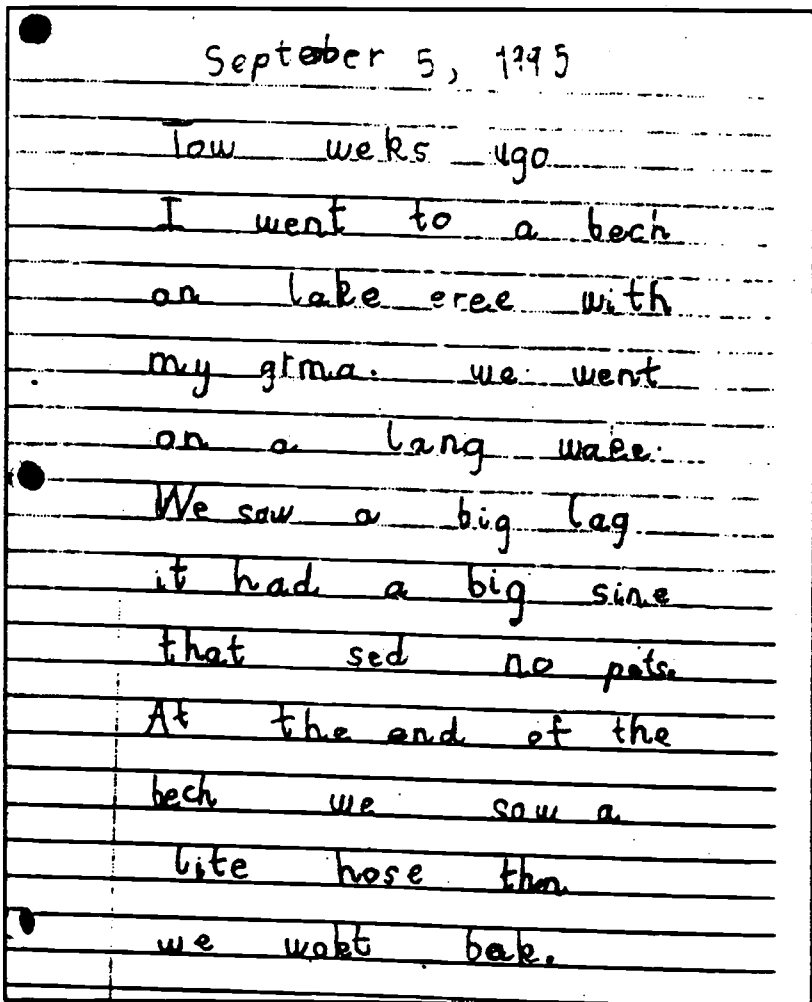 September 5, 1995
Tow weks ugo
I went to a bech
on lake eree with
my grma. we went
on a lang
We saw a big lag
it had a big sine
that sed no pets.
At the end of the
bech we saw a
lite hose then
we wokt bak.